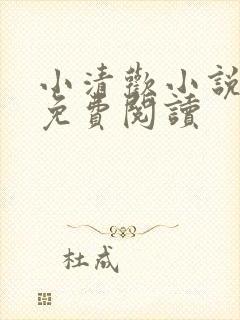 小清歡小說
免費閱讀
杜成